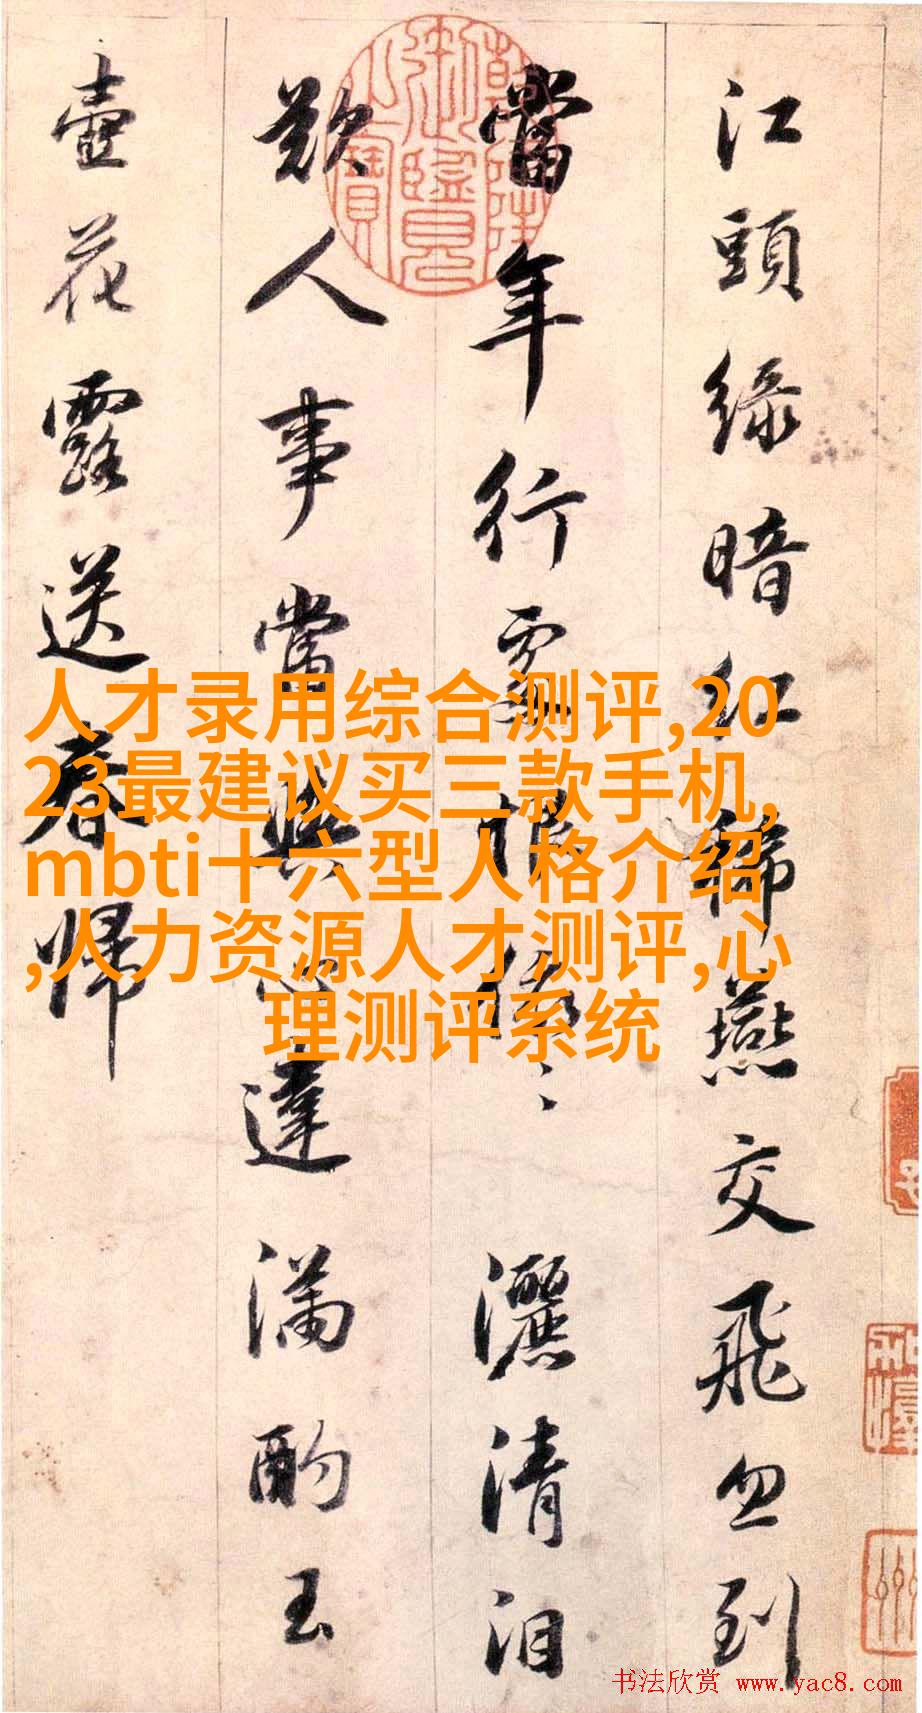 江頭綠暗紅稀燕交飛忽到
當年行處恨依〻灑清泪
歎人事當與心違滿酌玉
壺花露送春歸
乾隆御覽之寶
人才录用综合测评,20
23最建议买三款手机,
mbti十六型人格介绍
,人力资源人才测评,心
理测评系统
书法欣赏 www.yac8.com